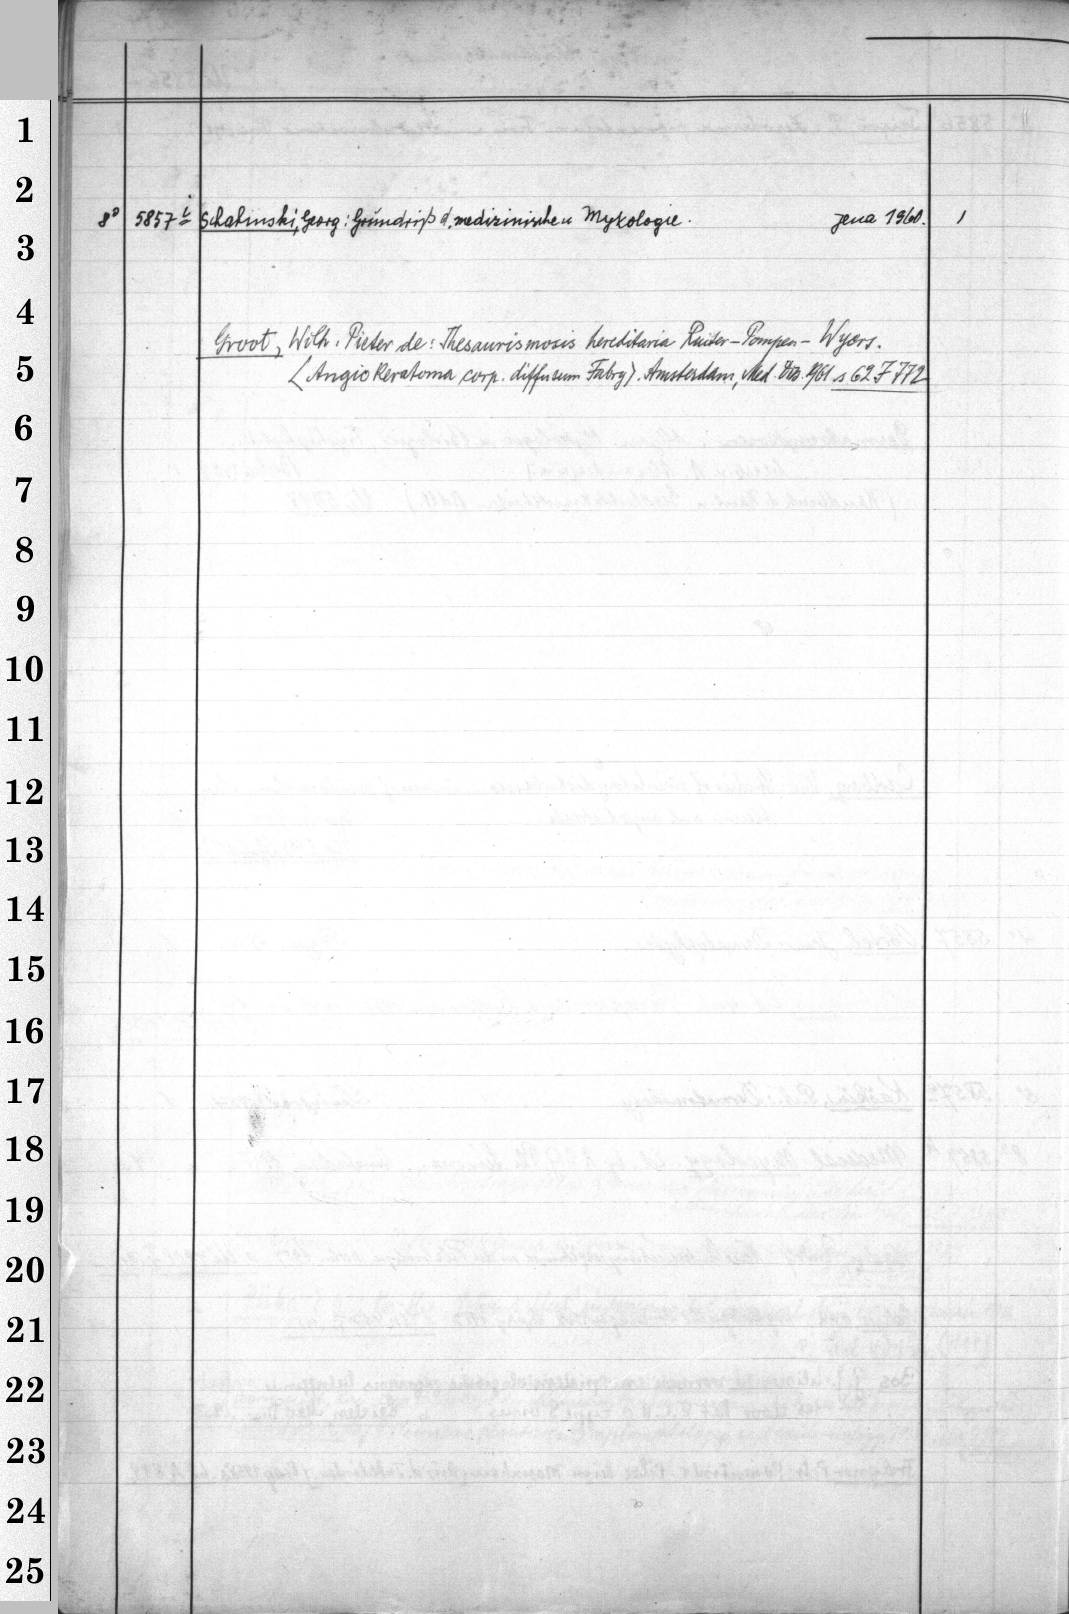 1
2
8° 5857 i Schabinski, Georg: Grundriß d. medizinischen Mykologie. Jena 1960. 1
3
4
Groot, Wilh. Pieter de: Thesaurismosis hereditaria Ruiter-Pompen-Wyers.
5
(Angiokeratoma corp. diffusum Fabry). Amsterdam, Med. Diss. 1961 s 62 F 772
6
7
8
9
10
11
12
13
14
15
16
17
18
19
20
21
22
23
24
25